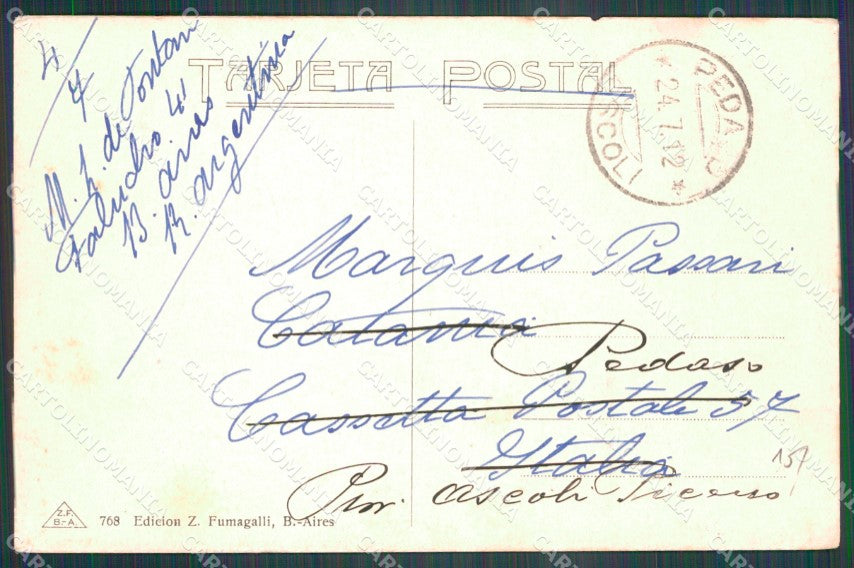 TARJETA POSTAL
4
7
M. L. de
4
B. aires
R. Argentina
PEDASO
ASCOLI
* 24.7.12 *
Marquis Passari
Catania
Pedaso
Cassetta Postale 57
Italia
157
Prov. Ascoli Piceno
Z.F.
B-A.
768 Edicion Z. Fumagalli, B.-Aires
CARTOLINOMANIA